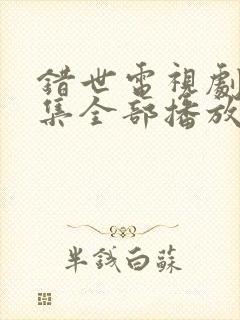 錯世電視劇
集全部播放
半錢白蘇